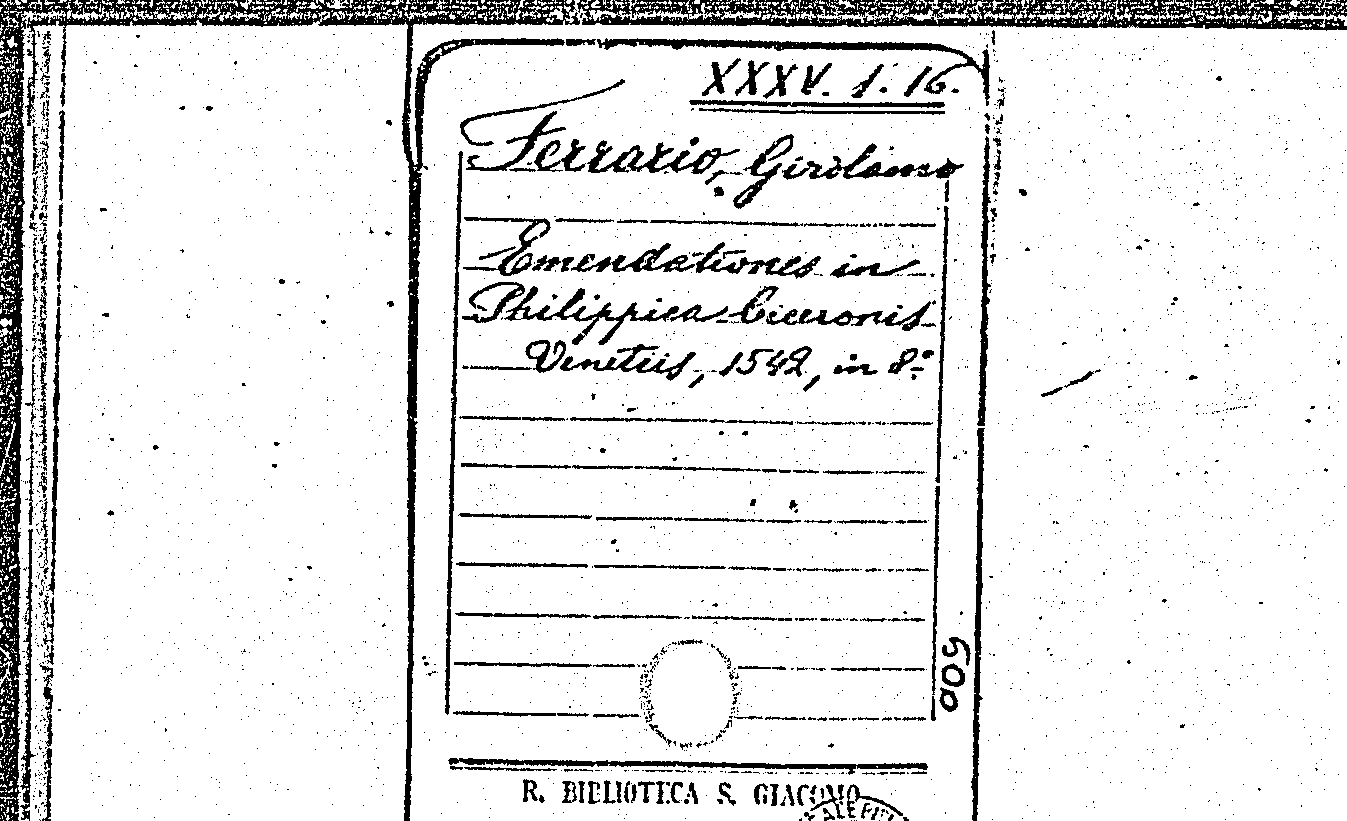 XXXV. 1. 16.
Ferrario, Girolamo
Emendationes in
Philippica Ciceronis
Venetiis, 1542, in 8°
R. BIBLIOTECA S. GIACOMO